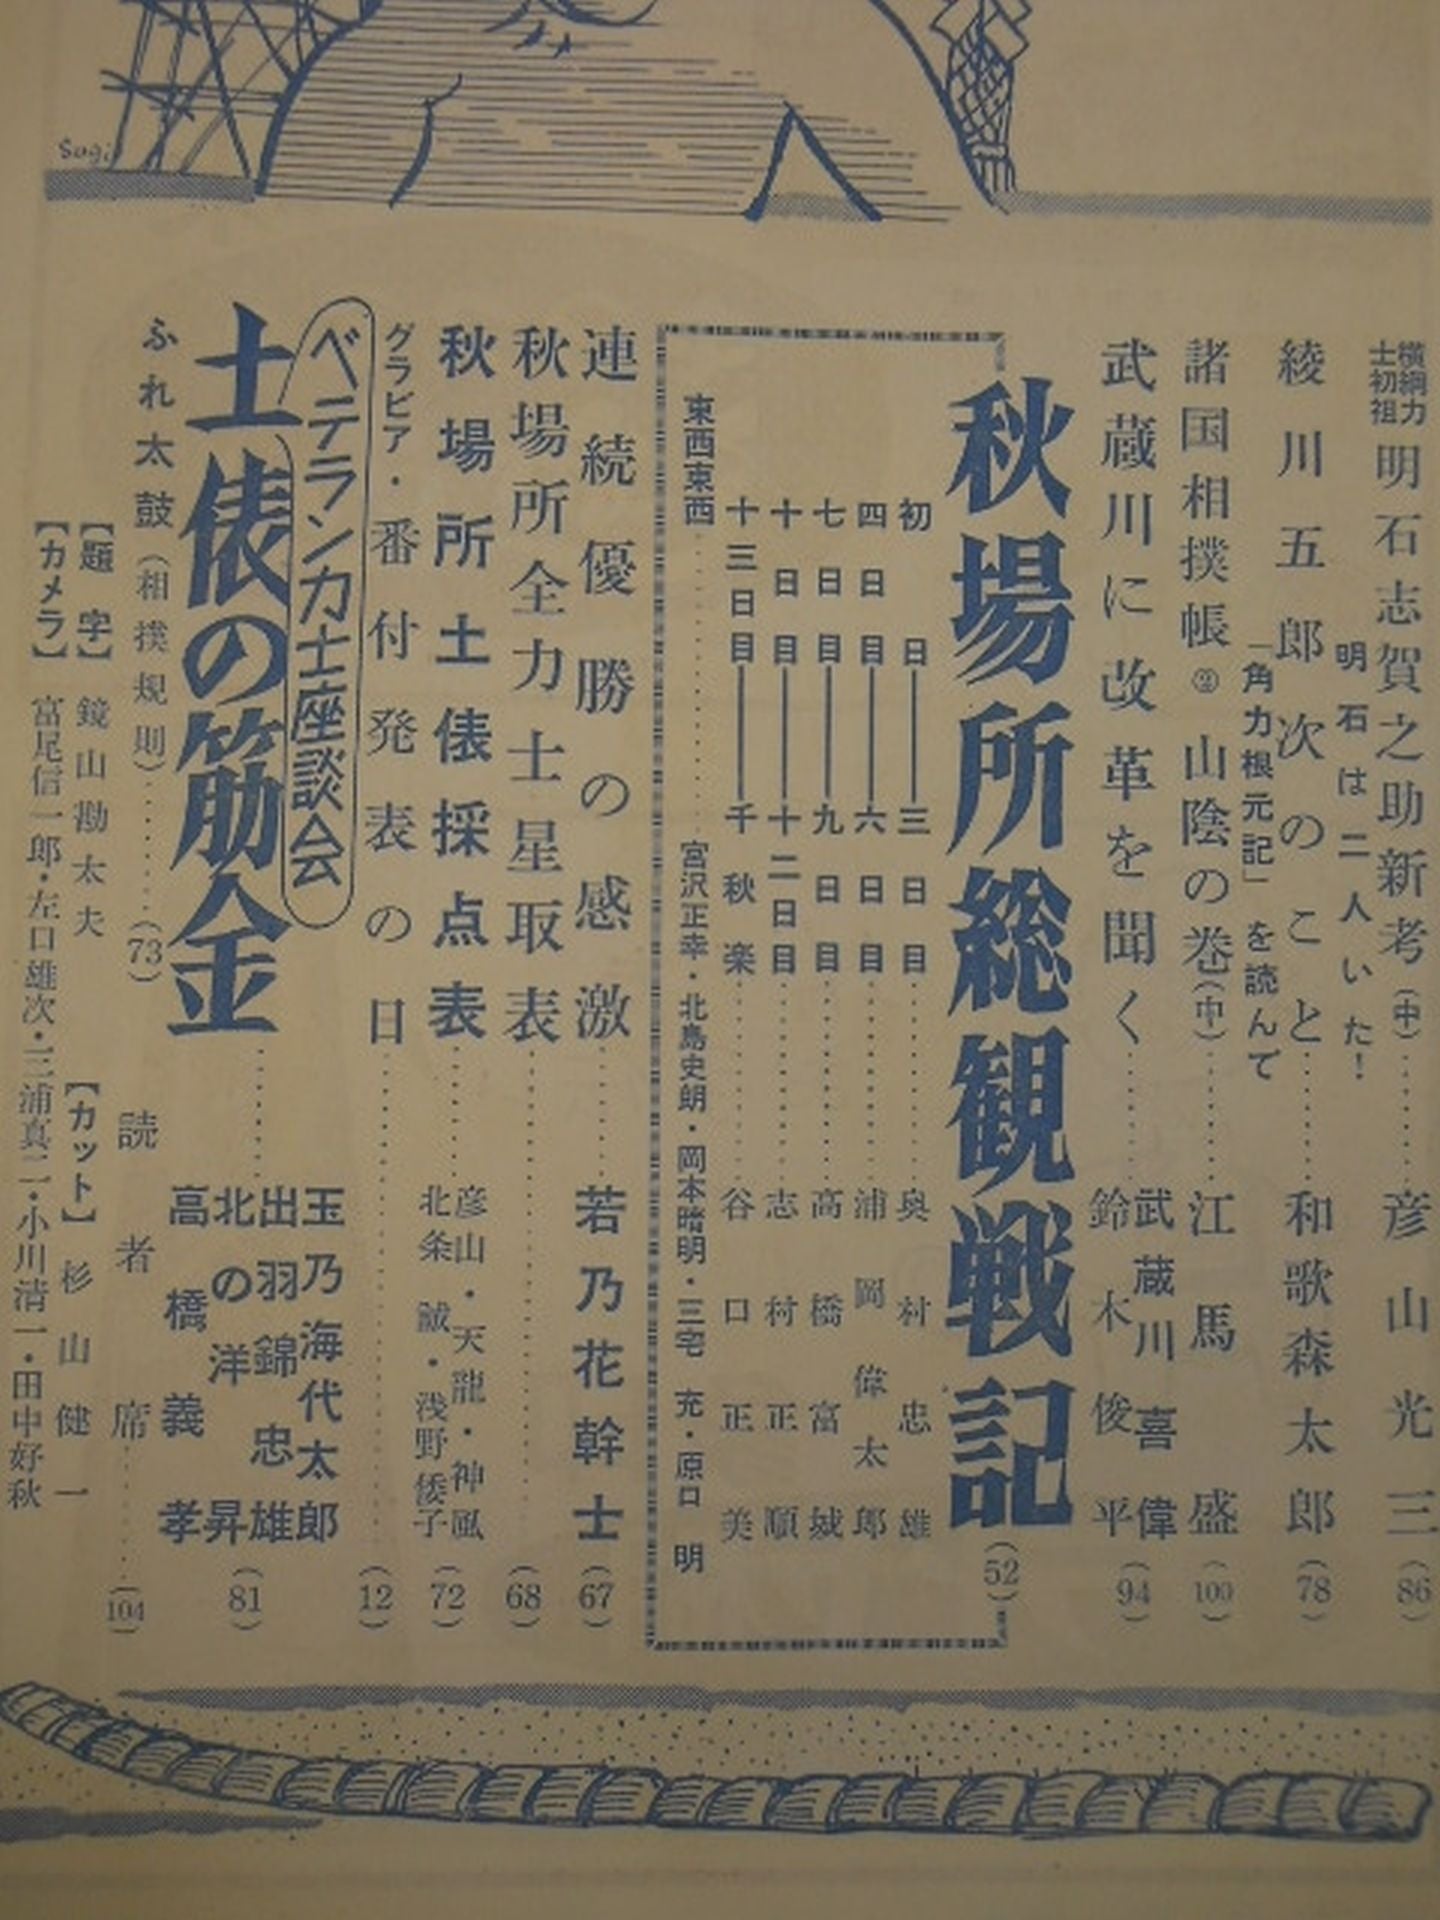 横綱力士初祖 明石志賀之助新考(中)……彦山光三(86)
明石は二人いた!
綾川五郎次のこと……和歌森太郎(78)
「角力根元記」を読んで
諸国相撲帳② 山陰の巻(中)……江馬盛(100)
武蔵川に改革を聞く……武蔵川喜偉 鈴木俊平(94)
秋場所総観戦記(52)
初日――三日目……奥村忠雄
四日目――六日目……浦岡偉太郎
七日目――九日目……高橋富城
十日目――十二日目……志村正順
十三日目――千秋楽……谷口正美
東西東西……宮沢正幸・北島史朗・岡本晴明・三宅充・原口明
連続優勝の感激……若乃花幹士(67)
秋場所全力士星取表……(68)
秋場所土俵採点表……彦山・天龍・神風 北条誠・浅野倭子(72)
グラビア・番付発表の日……(12)
ベテラン力士座談会
土俵の筋金……玉乃海代太郎 出羽錦忠雄 北の洋昇 高橋義孝(81)
ふれ太鼓(相撲規則)……(73) 読者席……(104)
【題字】鏡山勘太夫 【カット】杉山健一
【カメラ】富尾信一郎・左口雄次・三浦真二・小川清一・田中好秋
Sugi